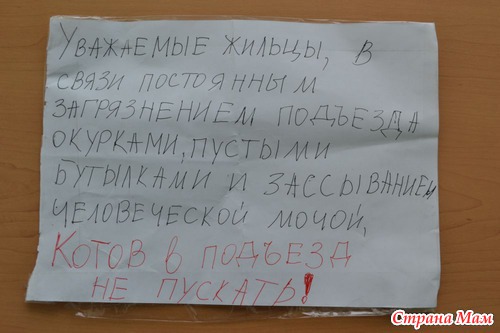 Уважаемые жильцы, в
связи постоянным
загрязнением подъезда
окурками, пустыми
бутылками и зассыванием
человеческой мочой,
Котов в подъезд
не пускать!
Страна Мам